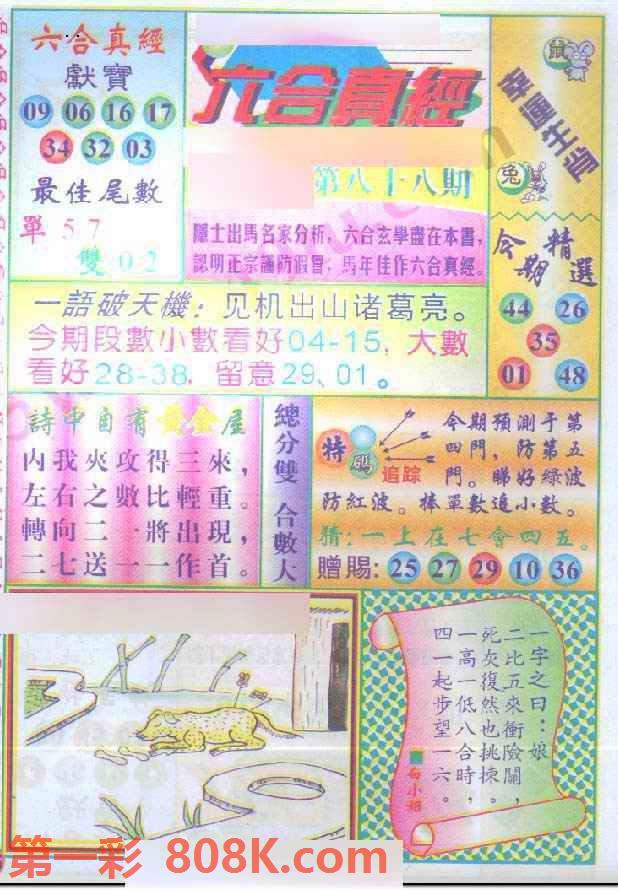 六合真經
獻寶
09 06 16 17
34 32 03
最佳尾數
單 5 7
雙 0 2
六合真經
第八十八期
隱士出馬名家分析，六合玄學盡在本書，
認明正宗謹防假冒，馬年佳作六合真經。
幸運生肖
鼠
兔
今期精選
44 26
35
01 48
一語破天機：见机出山诸葛亮。
今期段數小數看好04-15，大數
看好28-38，留意29、01。
詩中自有黃金屋
內我夾攻得三來，
左右之數比輕重。
轉向二一將出現，
二七送一一作首。
總分雙 合數大
特碼
追踪
今期預測于第
四門，防第五
門。睇好綠波
防紅波。捧單數追小數。
猜：一上在七會四五。
贈賜：25 27 29 10 36
一字之曰：娘
二比五來衝險關，
死灰復然也挑揀。
一高一低八合時，
四一起步望一六。
第一彩 808K.com